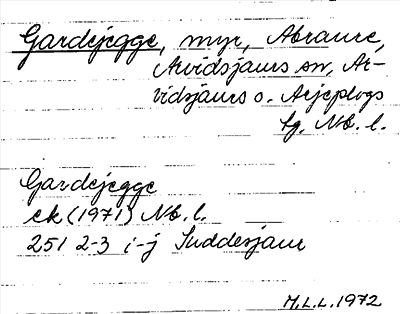 Gardejegge, myr, Abraure,
Arvidsjaurs sn, Ar-
vidsjaurs o. Arjeplogs
tg. Nb. l.
Gardejegge
ek (1971) Nb. l.
251 2-3 i-j Suddesjaur
M.L.L. 1972